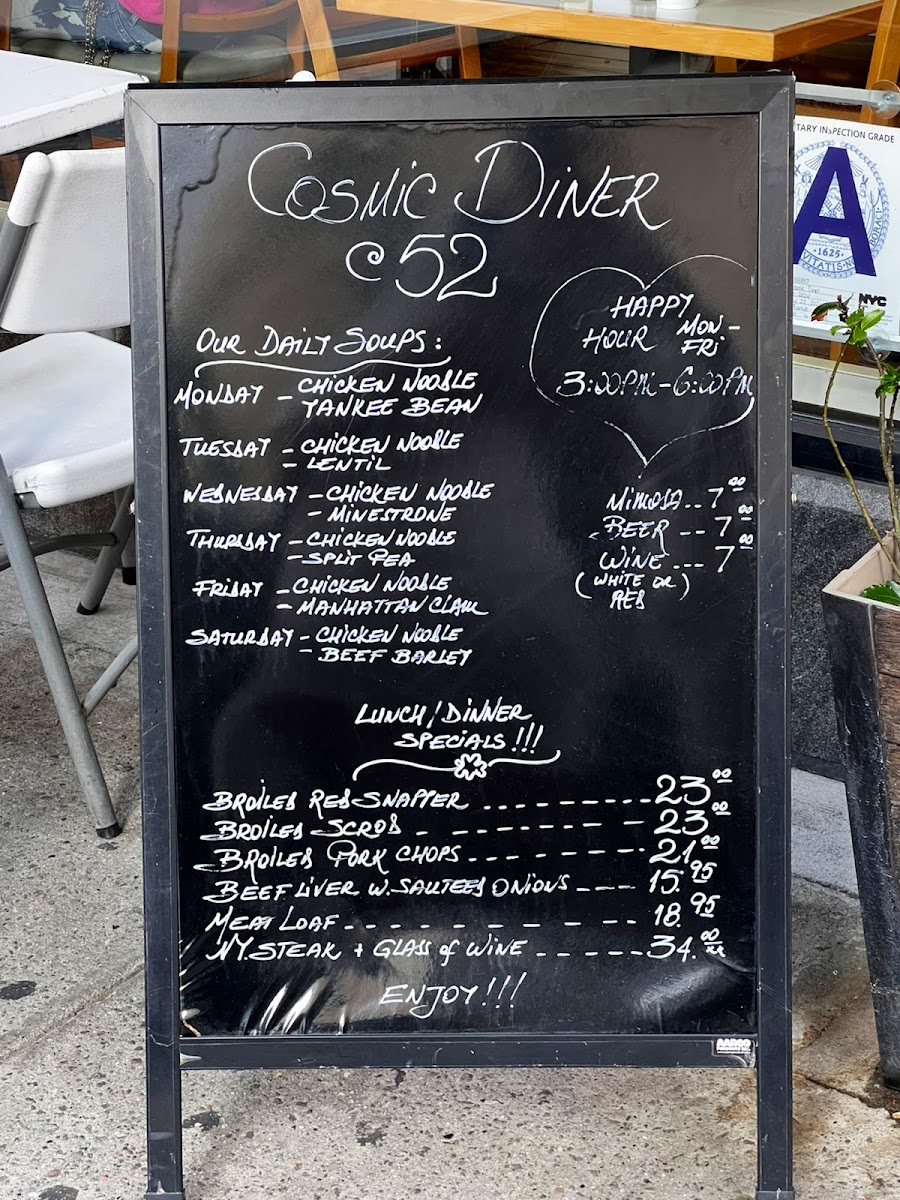 COSMIC DINER
@52
OUR DAILY SOUPS:
MONDAY - CHICKEN NOODLE
YANKEE BEAN
TUESDAY - CHICKEN NOODLE
- LENTIL
WEDNESDAY - CHICKEN NOODLE
- MINESTRONE
THURSDAY - CHICKEN NOODLE
- SPLIT PEA
FRIDAY - CHICKEN NOODLE
- MANHATTAN CLAM
SATURDAY - CHICKEN NOODLE
- BEEF BARLEY
HAPPY
HOUR MON-
FRI
3:00PM-6:00PM
MIMOSA.. 7 00
BEER -- 7 00
WINE --- 7 00
(WHITE OR)
RED
LUNCH/DINNER
SPECIALS!!!
BROILED RED SNAPPER --------- 23 00
BROILED SCROD - ------- 23 00
BROILED PORK CHOPS ------- 21 00
BEEF LIVER W. SAUTEED ONIONS ---- 15.95
MEAT LOAF ---------- 18.95
NY. STEAK + GLASS of WINE ------ 34.00
ENJOY!!!
TARY INSPECTION GRADE
A
1625
NYC